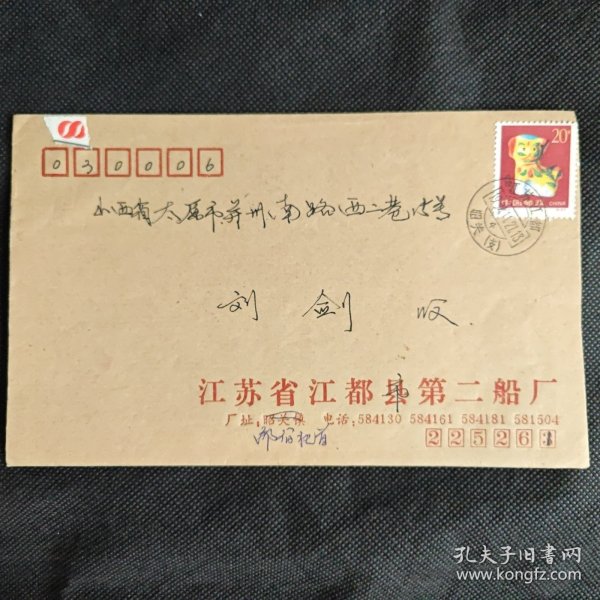 030006
20分
中国邮政 CHINA
山西省太原市并州南路西二巷
刘剑收
江苏省江都县市第二船厂
厂址:昭关镇 电话:584130 584161 584181 581504
225263
昭关(支)
孔夫子旧书网
www.kongfz.com